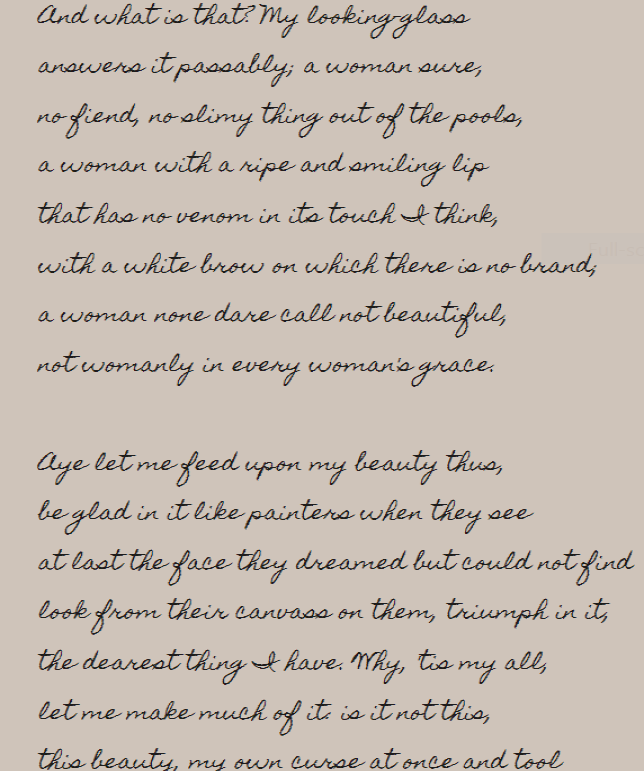 And what is that? My looking-glass
answers it passably; a woman sure,
no fiend, no slimy thing out of the pools,
a woman with a ripe and smiling lip
that has no venom in its touch I think,
with a white brow on which there is no brand;
a woman none dare call not beautiful,
not womanly in every woman's grace.

Aye let me feed upon my beauty thus,
be glad in it like painters when they see
at last the face they dreamed but could not find
look from their canvass on them, triumph in it,
the dearest thing I have. Why, 'tis my all,
let me make much of it: is it not this,
this beauty, my own curse at once and tool